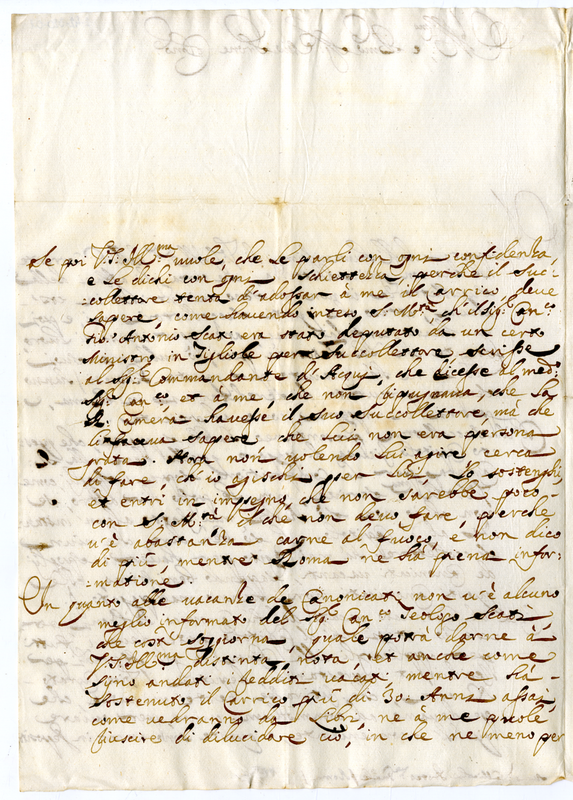 Se poi V.S. Ill.ma vuole, che le parli con ogni confidenza,
e le dichi con ogni schiettezza, perche il Suc:
:collettore tenta di adossar à me il carrico, deve
sapere, come havendo inteso S. M.tà ch'il Sig. Can.co
Gio. Antonio Scati era stato deputato da un certo
Ministro in Tigliole per Succollettore, scrisse
al Sig. Commandante d'Acqui, che dicesse al med.o
Sig. Can.co, et à me, che non ripugnava, che la
R. Camera havesse il suo Succollettore, mà che
li faceva sapere che lui non era persona
grata. Hora non volendo lui agire, cerca
di fare, ch'io agischi per lui, lo sostenghi,
et entri in impegno, che non sarebbe poco
con S. M.tà. Il che non devo fare, perche
v'è abastanza carne al fuoco, e non dico
di più, mentre Roma ne hà piena infor:
:matione.
In quanto alle vacanze de Canonicati non v'è alcuno
meglio informato del Sig. Can.co Teologo Scati,
che costì soggiorna, quale potrà darne à
V.S. Ill.ma distinta nota, et anche come
sijno andati i redditi vacati, mentre hà
sostenuto il carrico più di 30. Anni assai
come vedranno da libri, ne à me puole
riuscire di dilucidare ciò, in che ne meno per